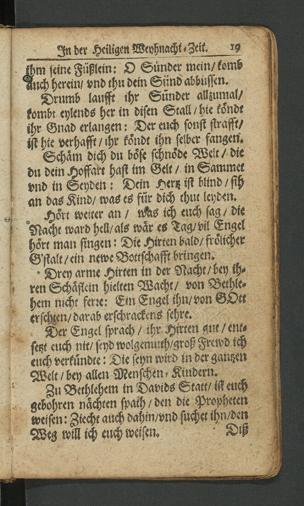 In der Heiligen Weyhnacht-Zeit. 19
ihm seine Füßlein: O Sünder mein/ komb
auch herein/ vnd thu dein Sünd abbüssen.
Drumb laufft ihr Sünder allzumal/
kombt eylends her in disen Stall/ hie köndt
ihr Gnad erlangen: Der euch sonst strafft/
ist hie verhafft/ ihr köndt ihn selber fangen.
Schäm dich du böse schnöde Welt/ die
du dein Hoffart hast im Gelt/ in Sammet
vnd in Seyden: Dein Hertz ist blind/ sih
an das Kind/ was es für dich thut leyden.
Hört weiter an/ was ich euch sag/ die
Nacht ward hell/ als wär es Tag/ vil Engel
hört man singen: Die Hirten bald/ frölicher
G'stalt/ ein newe Bottschafft bringen.
Drey arme Hirten in der Nacht/ bey ih-
ren Schäflein hielten Wacht/ von Bethle-
hem nicht ferre: Ein Engel ihn/ von GOtt
erschien/ darab erschrackens sehre.
Der Engel sprach/ ihr Hirten gut/ ent-
setzt euch nit/ seyd wolgemuth/ groß Frewd ich
euch verkündte: Die seyn wird in der gantzen
Welt/ bey allen Menschen-Kindern.
Zu Bethlehem in Davids Statt/ ist euch
gebohren nächten spath/ den die Propheten
weisen: Ziecht auch dahin/ vnd suchet ihn/ den
Weg will ich euch weisen. Diß